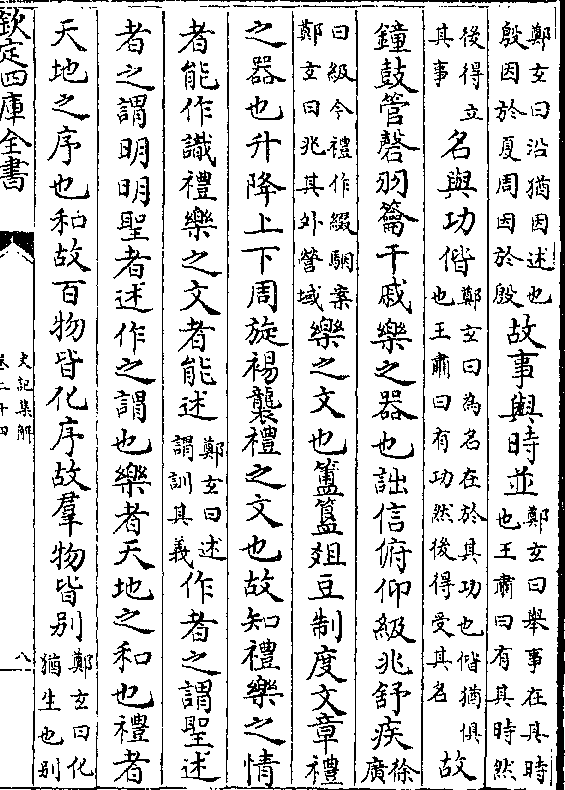 鄭玄曰沿猶因述也殷因於夏周因於殷故事與時並鄭玄曰舉事在其時也王肅曰有其時然
後得立其事名與功偕鄭玄曰為名在於其功也偕猶俱也王肅曰有功然後得受其名故
鐘鼓管磬羽籥干戚樂之器也詘信俯仰級兆舒疾徐廣
曰級今禮作綴駰案鄭玄曰兆其外營域樂之文也簠簋俎豆制度文章禮
之器也升降上下周旋裼襲禮之文也故知禮樂之情
者能作識禮樂之文者能述鄭玄曰述謂訓其義作者之謂聖述
者之謂明明聖者述作之謂也樂者天地之和也禮者
天地之序也和故百物皆化序故羣物皆别鄭玄曰化猶生也别
欽定四庫全書
史記集解
卷二十四
八